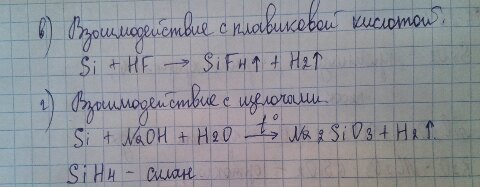 в) Взаимодействие с плавиковой кислотой.
Si + HF → SiF4↑ + H2↑
г) Взаимодействие с щелочами.
Si + NaOH + H2O t°→ Na2SiO3 + H2↑
SiH4 – силан